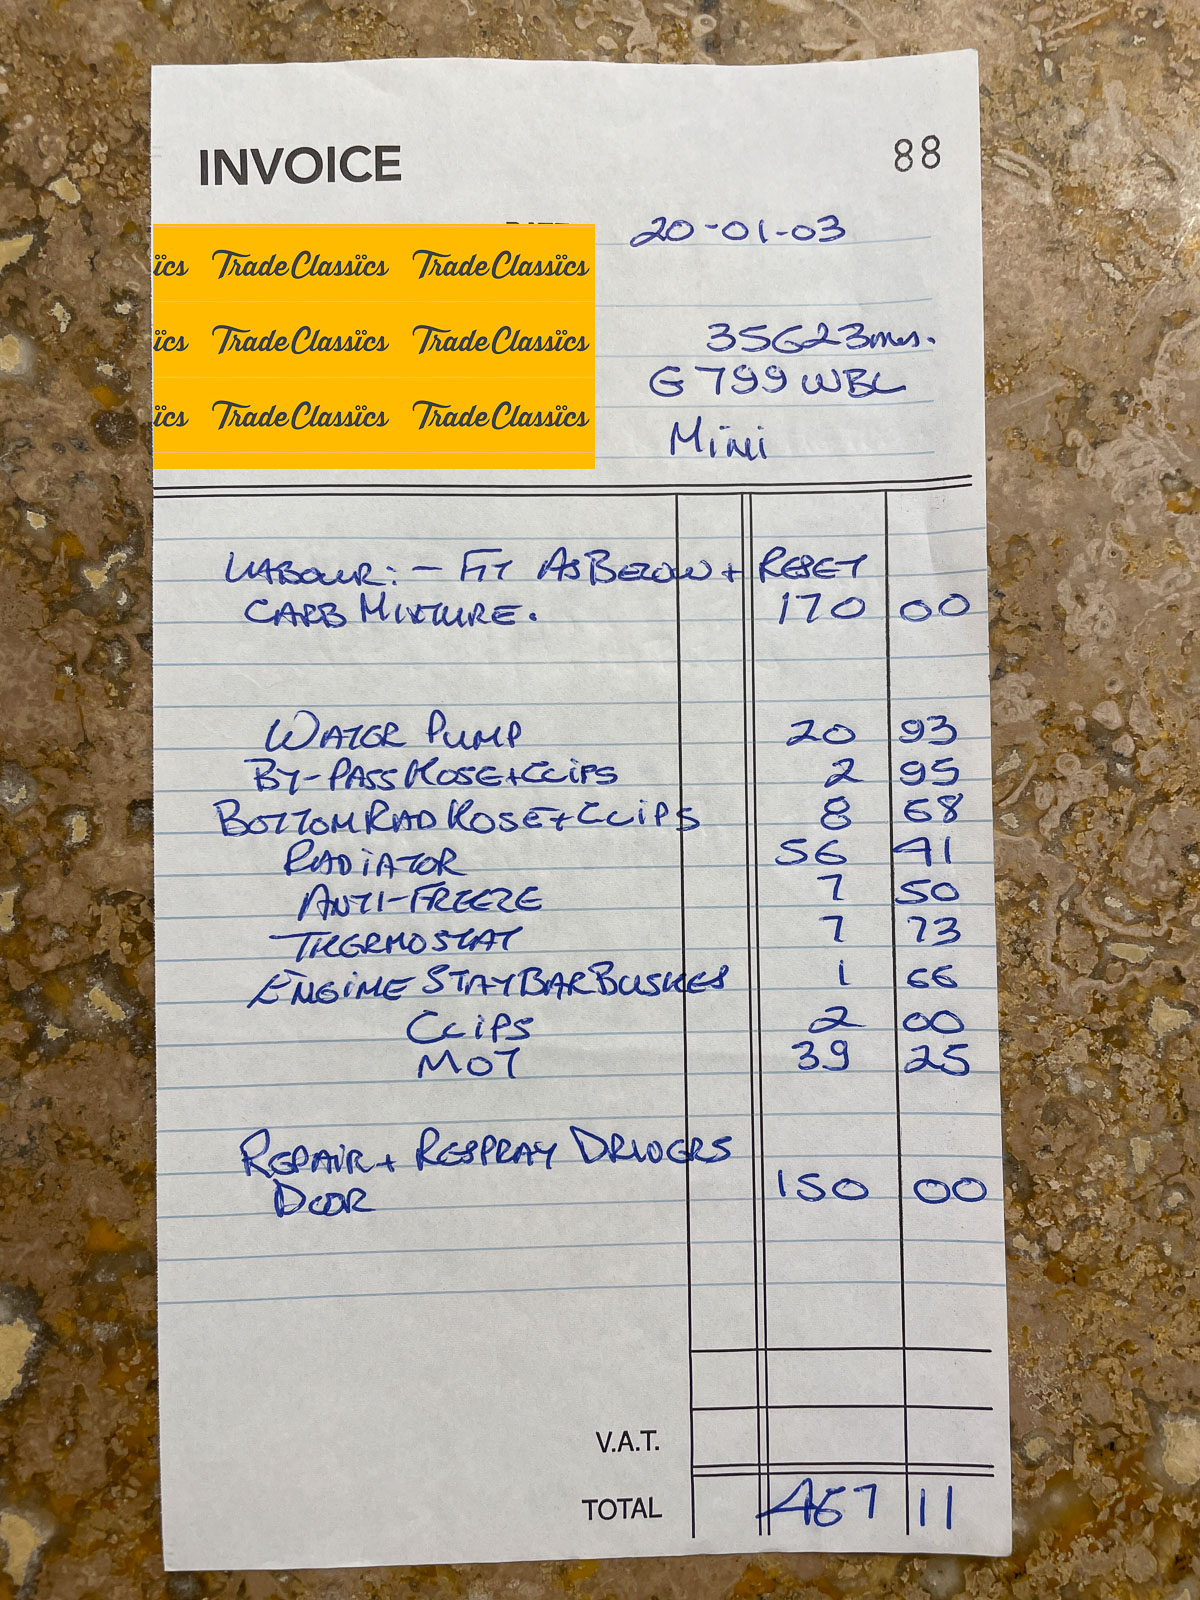 INVOICE 88
20-01-03
ïcs TradeClassïcs TradeClassïcs
35623 mls.
ïcs TradeClassïcs TradeClassïcs
G799 WBL
ïcs TradeClassïcs TradeClassïcs
Mini
LABOUR:- FIT AS BELOW + RESET
CARB MIXTURE. 170 00
WATER PUMP 20 93
BY-PASS HOSE + CLIPS 2 95
BOTTOM RAD HOSE + CLIPS 8 68
RADIATOR 56 41
ANTI-FREEZE 7 50
THERMOSTAT 7 73
ENGINE STAY BAR BUSHES 1 66
CLIPS 2 00
MOT 39 25
REPAIR + RESPRAY DRIVERS
DOOR 150 00
V.A.T.
TOTAL 467 11